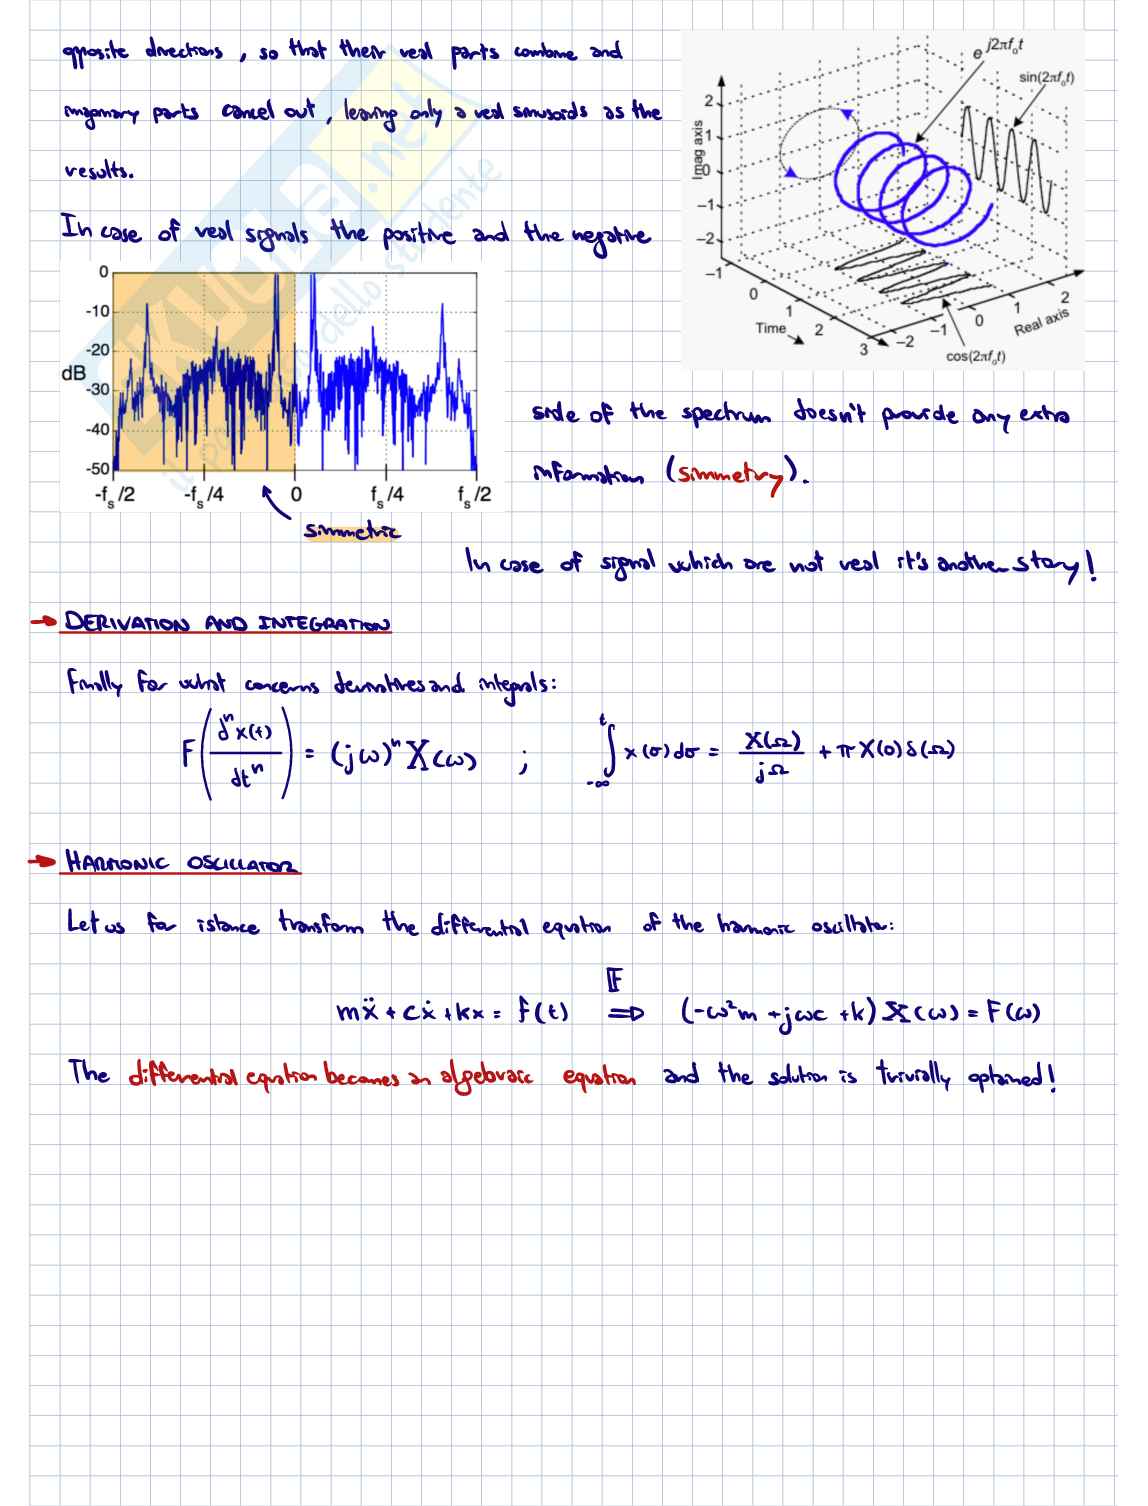 opposite directions, so that their real parts combine and
imaginary parts cancel out, leaving only a real sinusoids as the
results.
In case of real signals the positive and the negative
e^{j2πf₀t}
sin(2πf₀t)
Imag axis
2
1
0
−1
−2
−1
0
1
2
3
Time
−2
−1
0
1
2
Real axis
cos(2πf₀t)
dB
0
-10
-20
-30
-40
-50
-fₛ/2 -fₛ/4 0 fₛ/4 fₛ/2
simmetric
side of the spectrum doesn't provide any extra
information (simmetry).
In case of signal which are not real it's another story!
→ DERIVATION AND INTEGRATION
Finally for what concerns derivatives and integrals:
F(dⁿx(t)/dtⁿ) = (jω)ⁿ X(ω) ; ∫_{-∞}^{t} x(σ)dσ = X(Ω)/jΩ + πX(0)δ(Ω)
→ HARMONIC OSCILLATOR
Let us for istance transform the differential equation of the harmonic oscillator:
𝔽
mẍ + cẋ + kx = f(t) ⇒ (-ω²m + jωc + k) X(ω) = F(ω)
The differential equation becomes an algebraic equation and the solution is trivially optained!